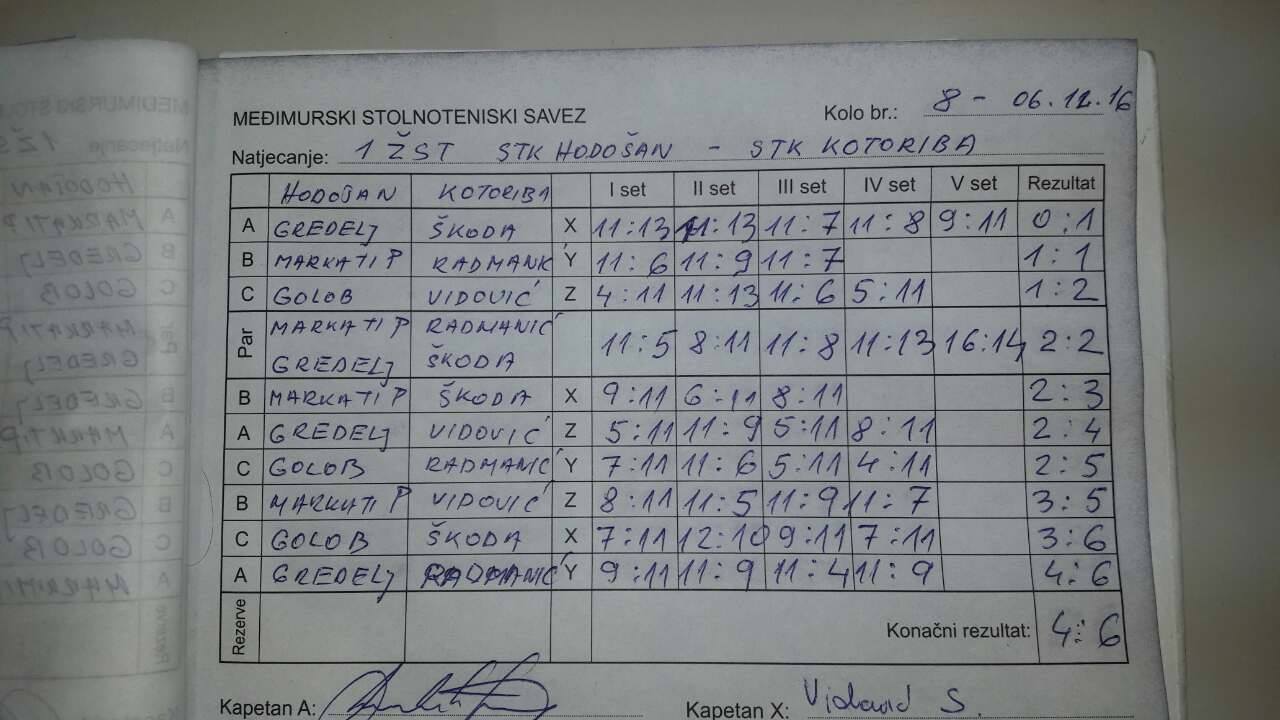 MEĐIMURSKI STOLNOTENISKI SAVEZ Kolo br.: 8 - 06.12.16
Natjecanje: 1 ŽST STK HODOŠAN - STK KOTORIBA
HODOŠAN KOTORIBA I set II set III set IV set V set Rezultat
A GREDELJ ŠKODA X 11:13 11:13 11:7 11:8 9:11 0:1
B MARKATI P RADMANIĆ Y 11:6 11:9 11:7 1:1
C GOLOB VIDOVIĆ Z 4:11 11:13 11:6 5:11 1:2
Par MARKATI P RADMANIĆ 11:5 8:11 11:8 11:13 16:14 2:2
GREDELJ ŠKODA
B MARKATI P ŠKODA X 9:11 6:11 8:11 2:3
A GREDELJ VIDOVIĆ Z 5:11 11:9 5:11 8:11 2:4
C GOLOB RADMANIĆ Y 7:11 11:6 5:11 4:11 2:5
B MARKATI P VIDOVIĆ Z 8:11 11:5 11:9 11:7 3:5
C GOLOB ŠKODA X 7:11 12:10 9:11 7:11 3:6
A GREDELJ RADMANIĆ Y 9:11 11:9 11:4 11:9 4:6
Rezerve Konačni rezultat: 4:6
Kapetan A: Kapetan X: Vidović S.